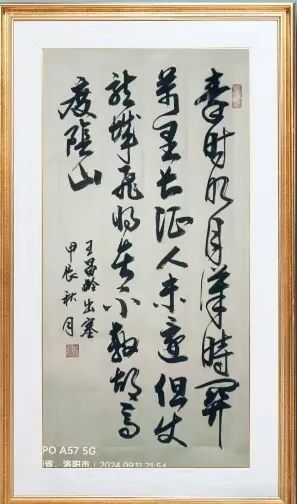 秦时明月漢時関
萬里长征人未還但使
龍城飛将在不教胡馬
度陰山
王昌齡出塞
甲辰秋月
PO A57 5G
省、洛阳市 | 2024.09.11 21:54